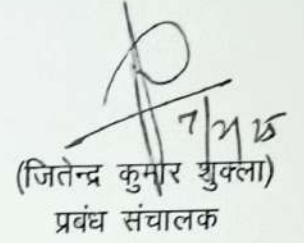 (जितेन्द्र कुमार शुक्ला)
प्रबंध संचालक